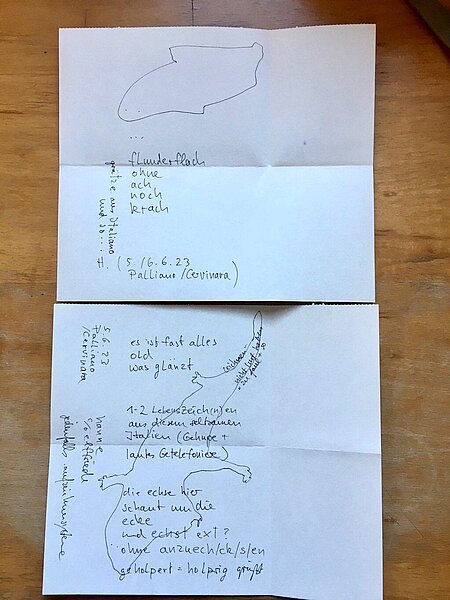 ...
flunderflach
ohne
ach
noch
krach
grüße aus Italiano
und so...
H. (5./6.6.23
Palliano/Cervinara)
5.6.23
Palliano
/Cervinara
es ist fast alles
old
was glänzt
zeichnen
nicht
1-2 Lebenszeich(n)en
aus diesem seltsamen
Italien (Gehupe +
lautes Getelefoniere)
hanne
c/o elfriede
jedenfalls
die echse hier
schaut um die
ecke
und echst ext?
ohne anzuech/ck/s/en
geholpert = holprig grüßt